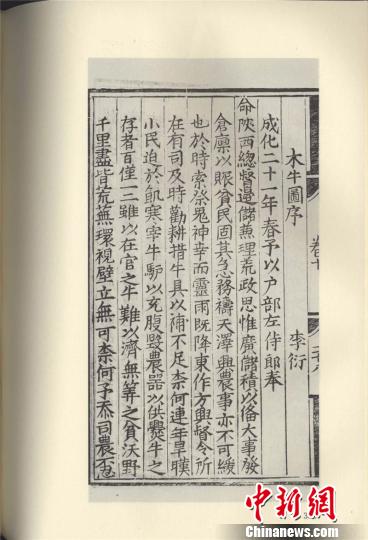 木牛圖序
李衍
成化二十一年春予以户部左侍郎奉
命陝西總督邊儲兼理荒政思惟廣儲積以俻大事發
倉廪以賑貧民固其急務禱天澤興農事亦不可緩
也於時索祭鬼神幸而靈雨既降東作方興督令所
在有司及時勸耕措牛具以補不足柰何連年旱暵
小民迫於飢寒宰牛馿以充腹毁農器以供爨牛之
存者百僅一二雖以在官之牛難以濟無筭之貧沃野
千里盡皆荒蕪環視壁立無可柰何予忝司農恧
卷十
中新網
www.chinanews.com